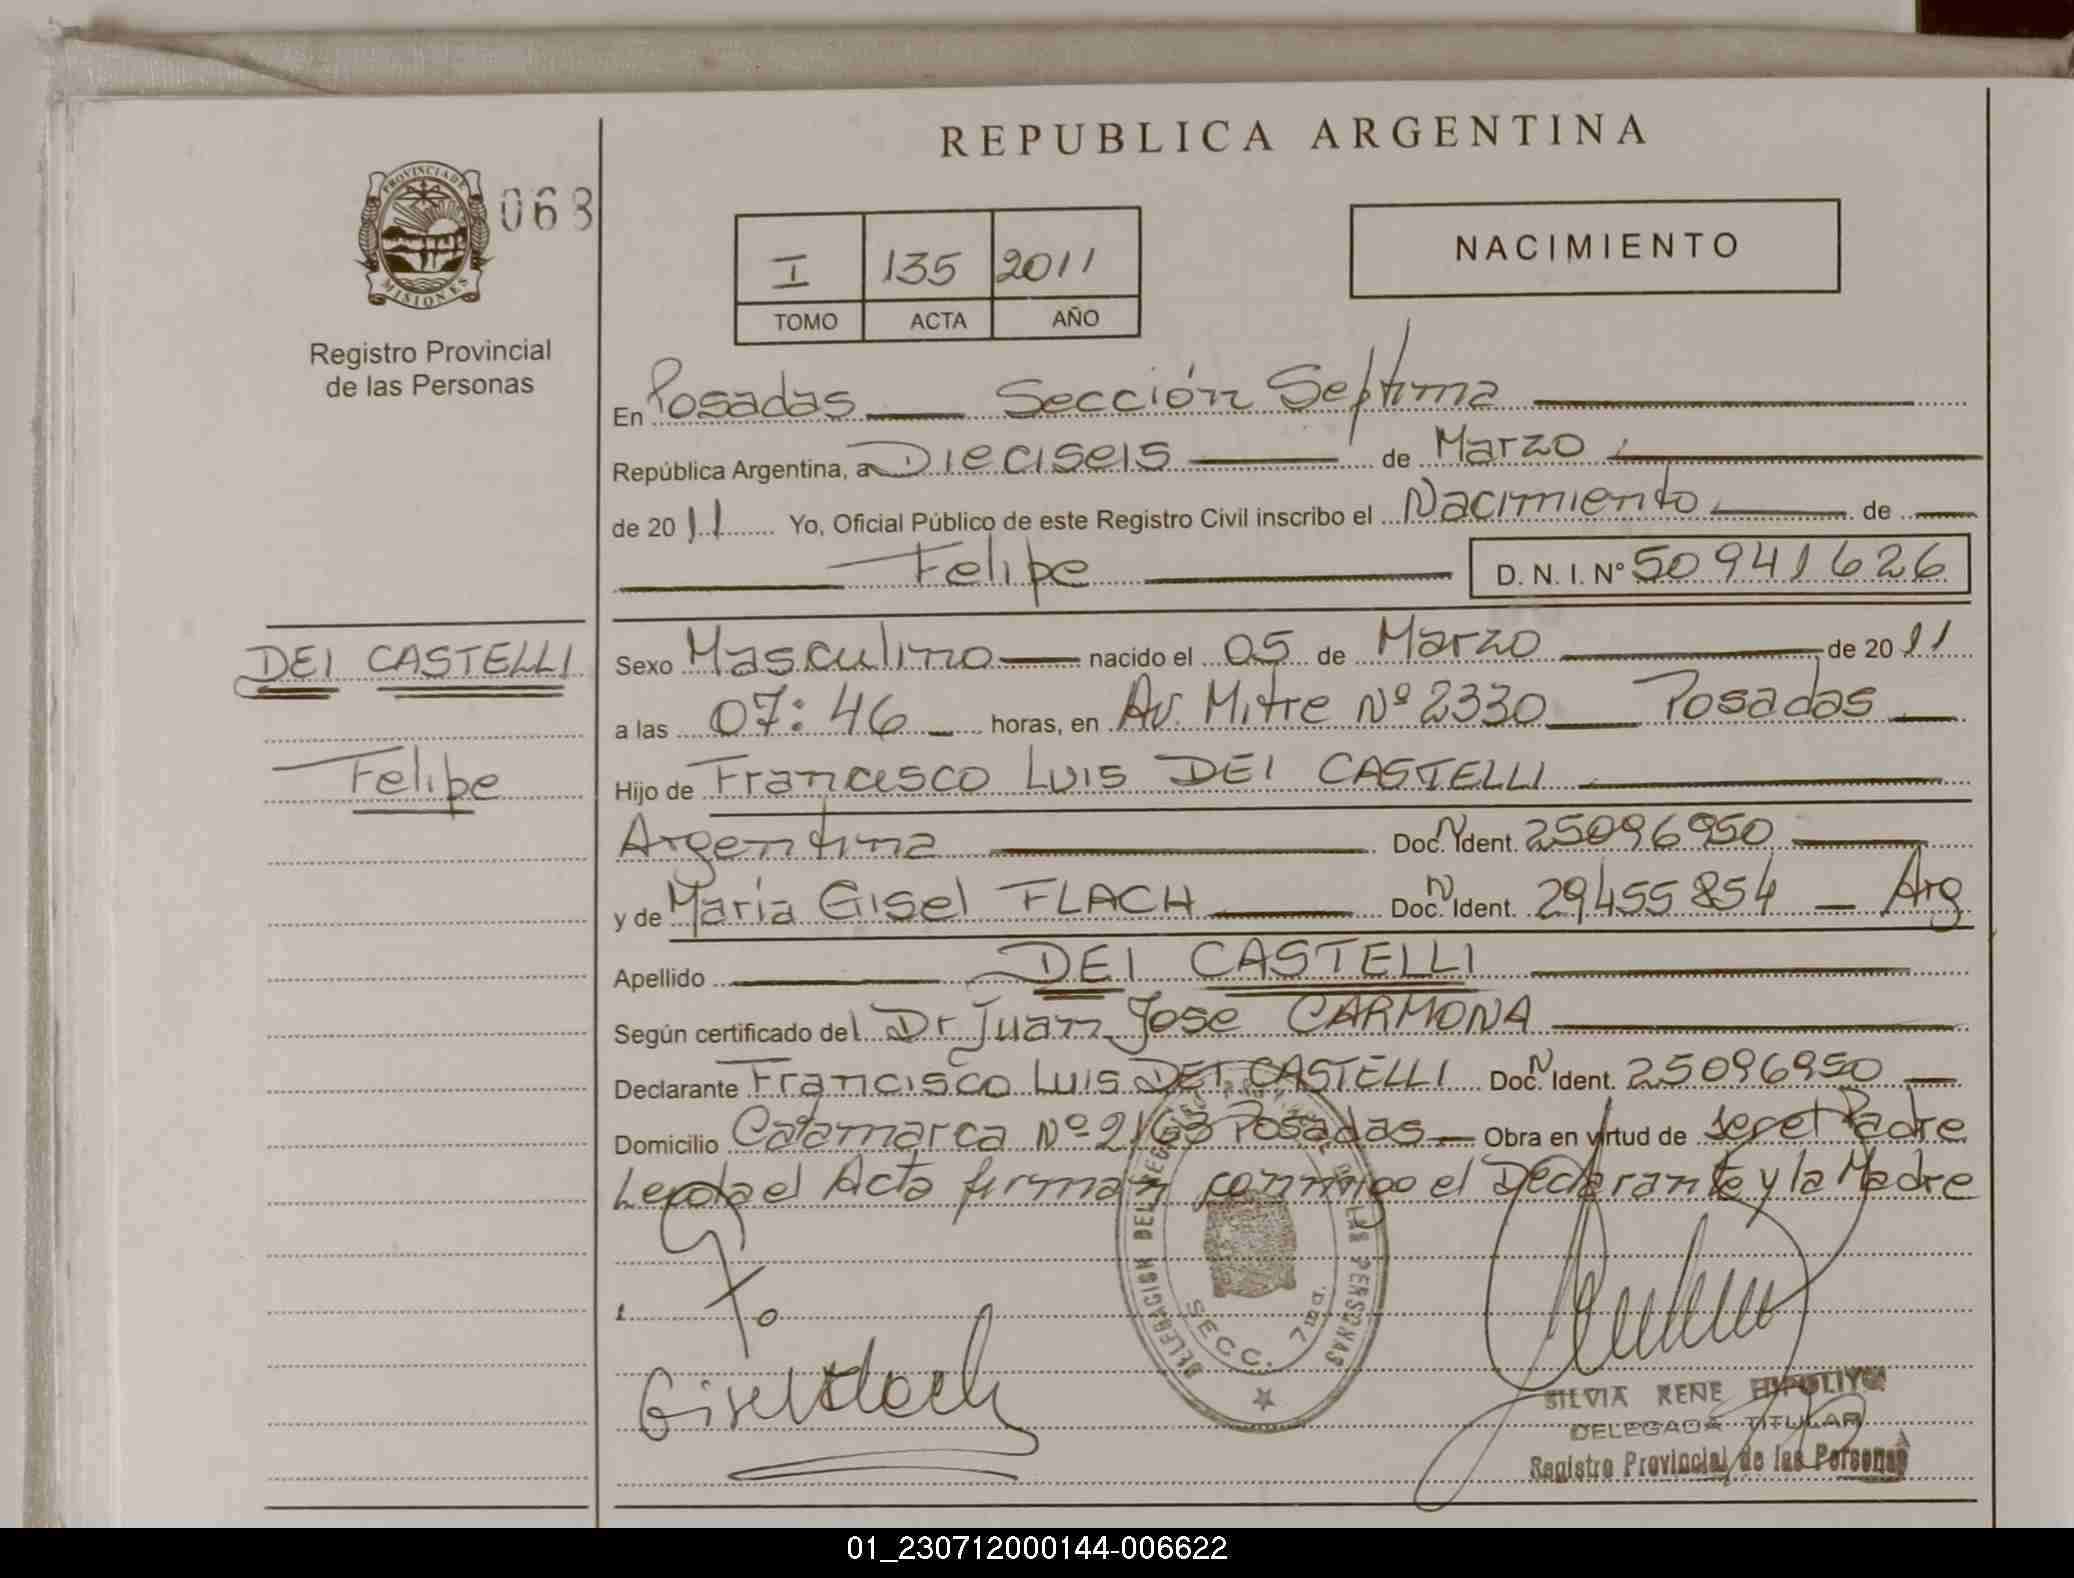 REPUBLICA ARGENTINA
PROVINCIA DE
MISIONES
068
Registro Provincial
de las Personas
I 135 2011
TOMO ACTA AÑO
NACIMIENTO
En Posadas Sección Septima
República Argentina, a Dieciseis de Marzo
de 2011 Yo, Oficial Público de este Registro Civil inscribo el Nacimiento de
Felipe D. N. I. N° 50941626
DEI CASTELLI
Felipe
Sexo Masculino nacido el 05 de Marzo de 2011
a las 07:46 horas, en Av. Mitre Nº 2330 Posadas
Hijo de Francisco Luis DEI CASTELLI
Argentina Doc. N Ident. 25096950
y de María Gisel FLACH Doc. N Ident. 29455854 Arg
Apellido DEI CASTELLI
Según certificado del Dr Juan Jose CARMONA
Declarante Francisco Luis DEI CASTELLI Doc. N Ident. 25096950
Domicilio Catamarca Nº 2163 Posadas Obra en virtud de ser el Padre
Leida el Acta firman conmigo el Declarante y la Madre
DELEGACION DEL REGISTRO PROVINCIAL DE LAS PERSONAS
SECC. 7ma.
Gisel Flach
SILVIA RENE HIPOLITO
DELEGADA TITULAR
Registro Provincial de las Personas
01_230712000144-006622